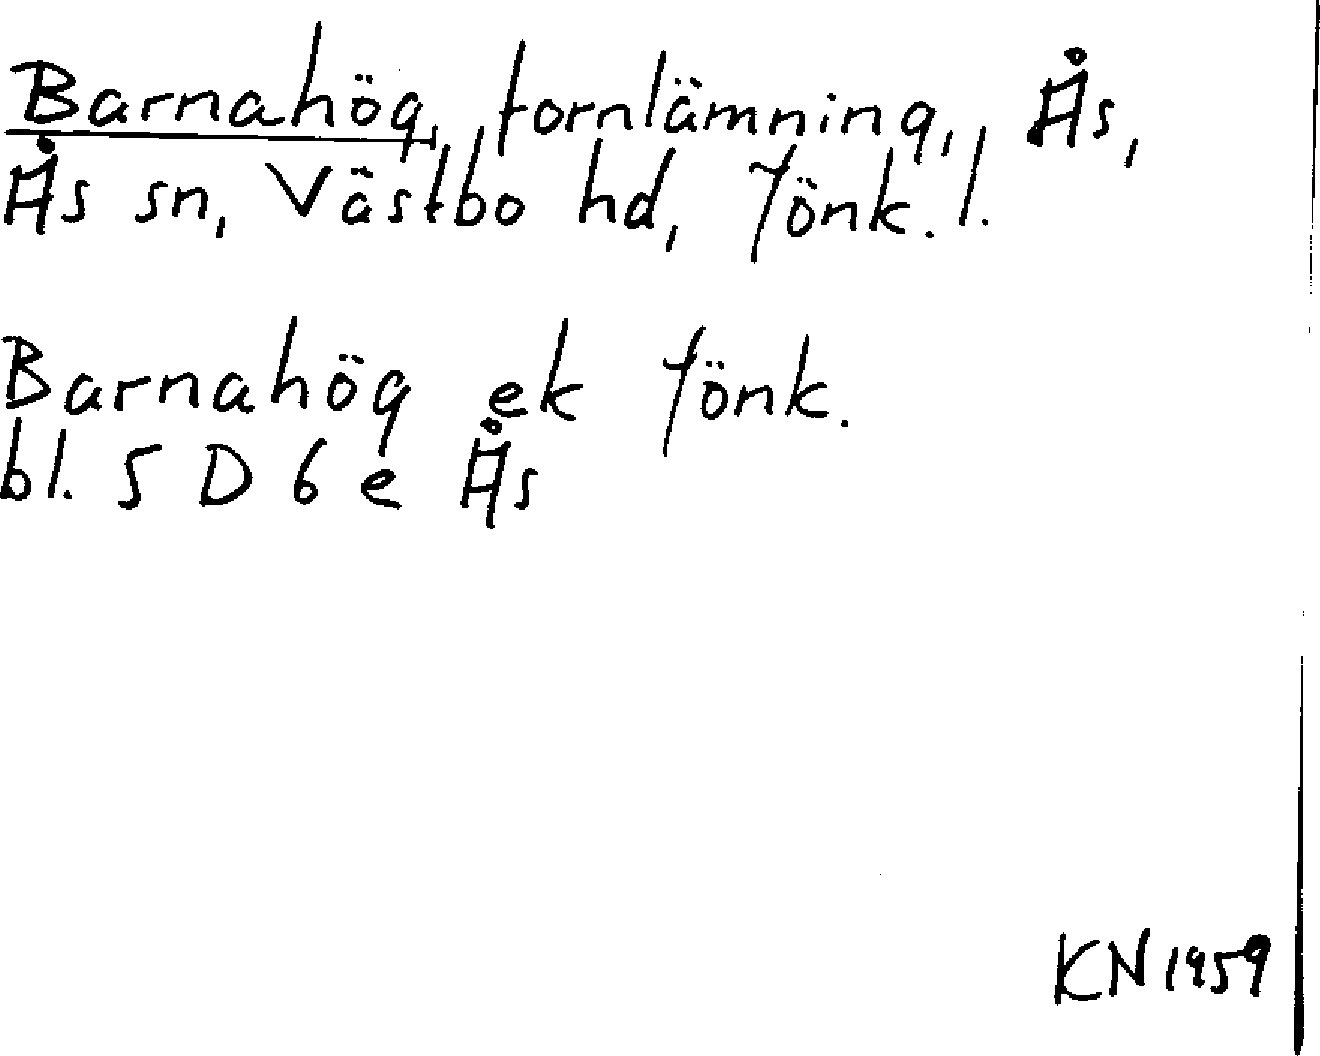 Barnahög, fornlämning, Ås,
Ås sn, Västbo hd, Jönk. l.
Barnahög ek Jönk.
bl. 5 D 6 e Ås
KN 1959